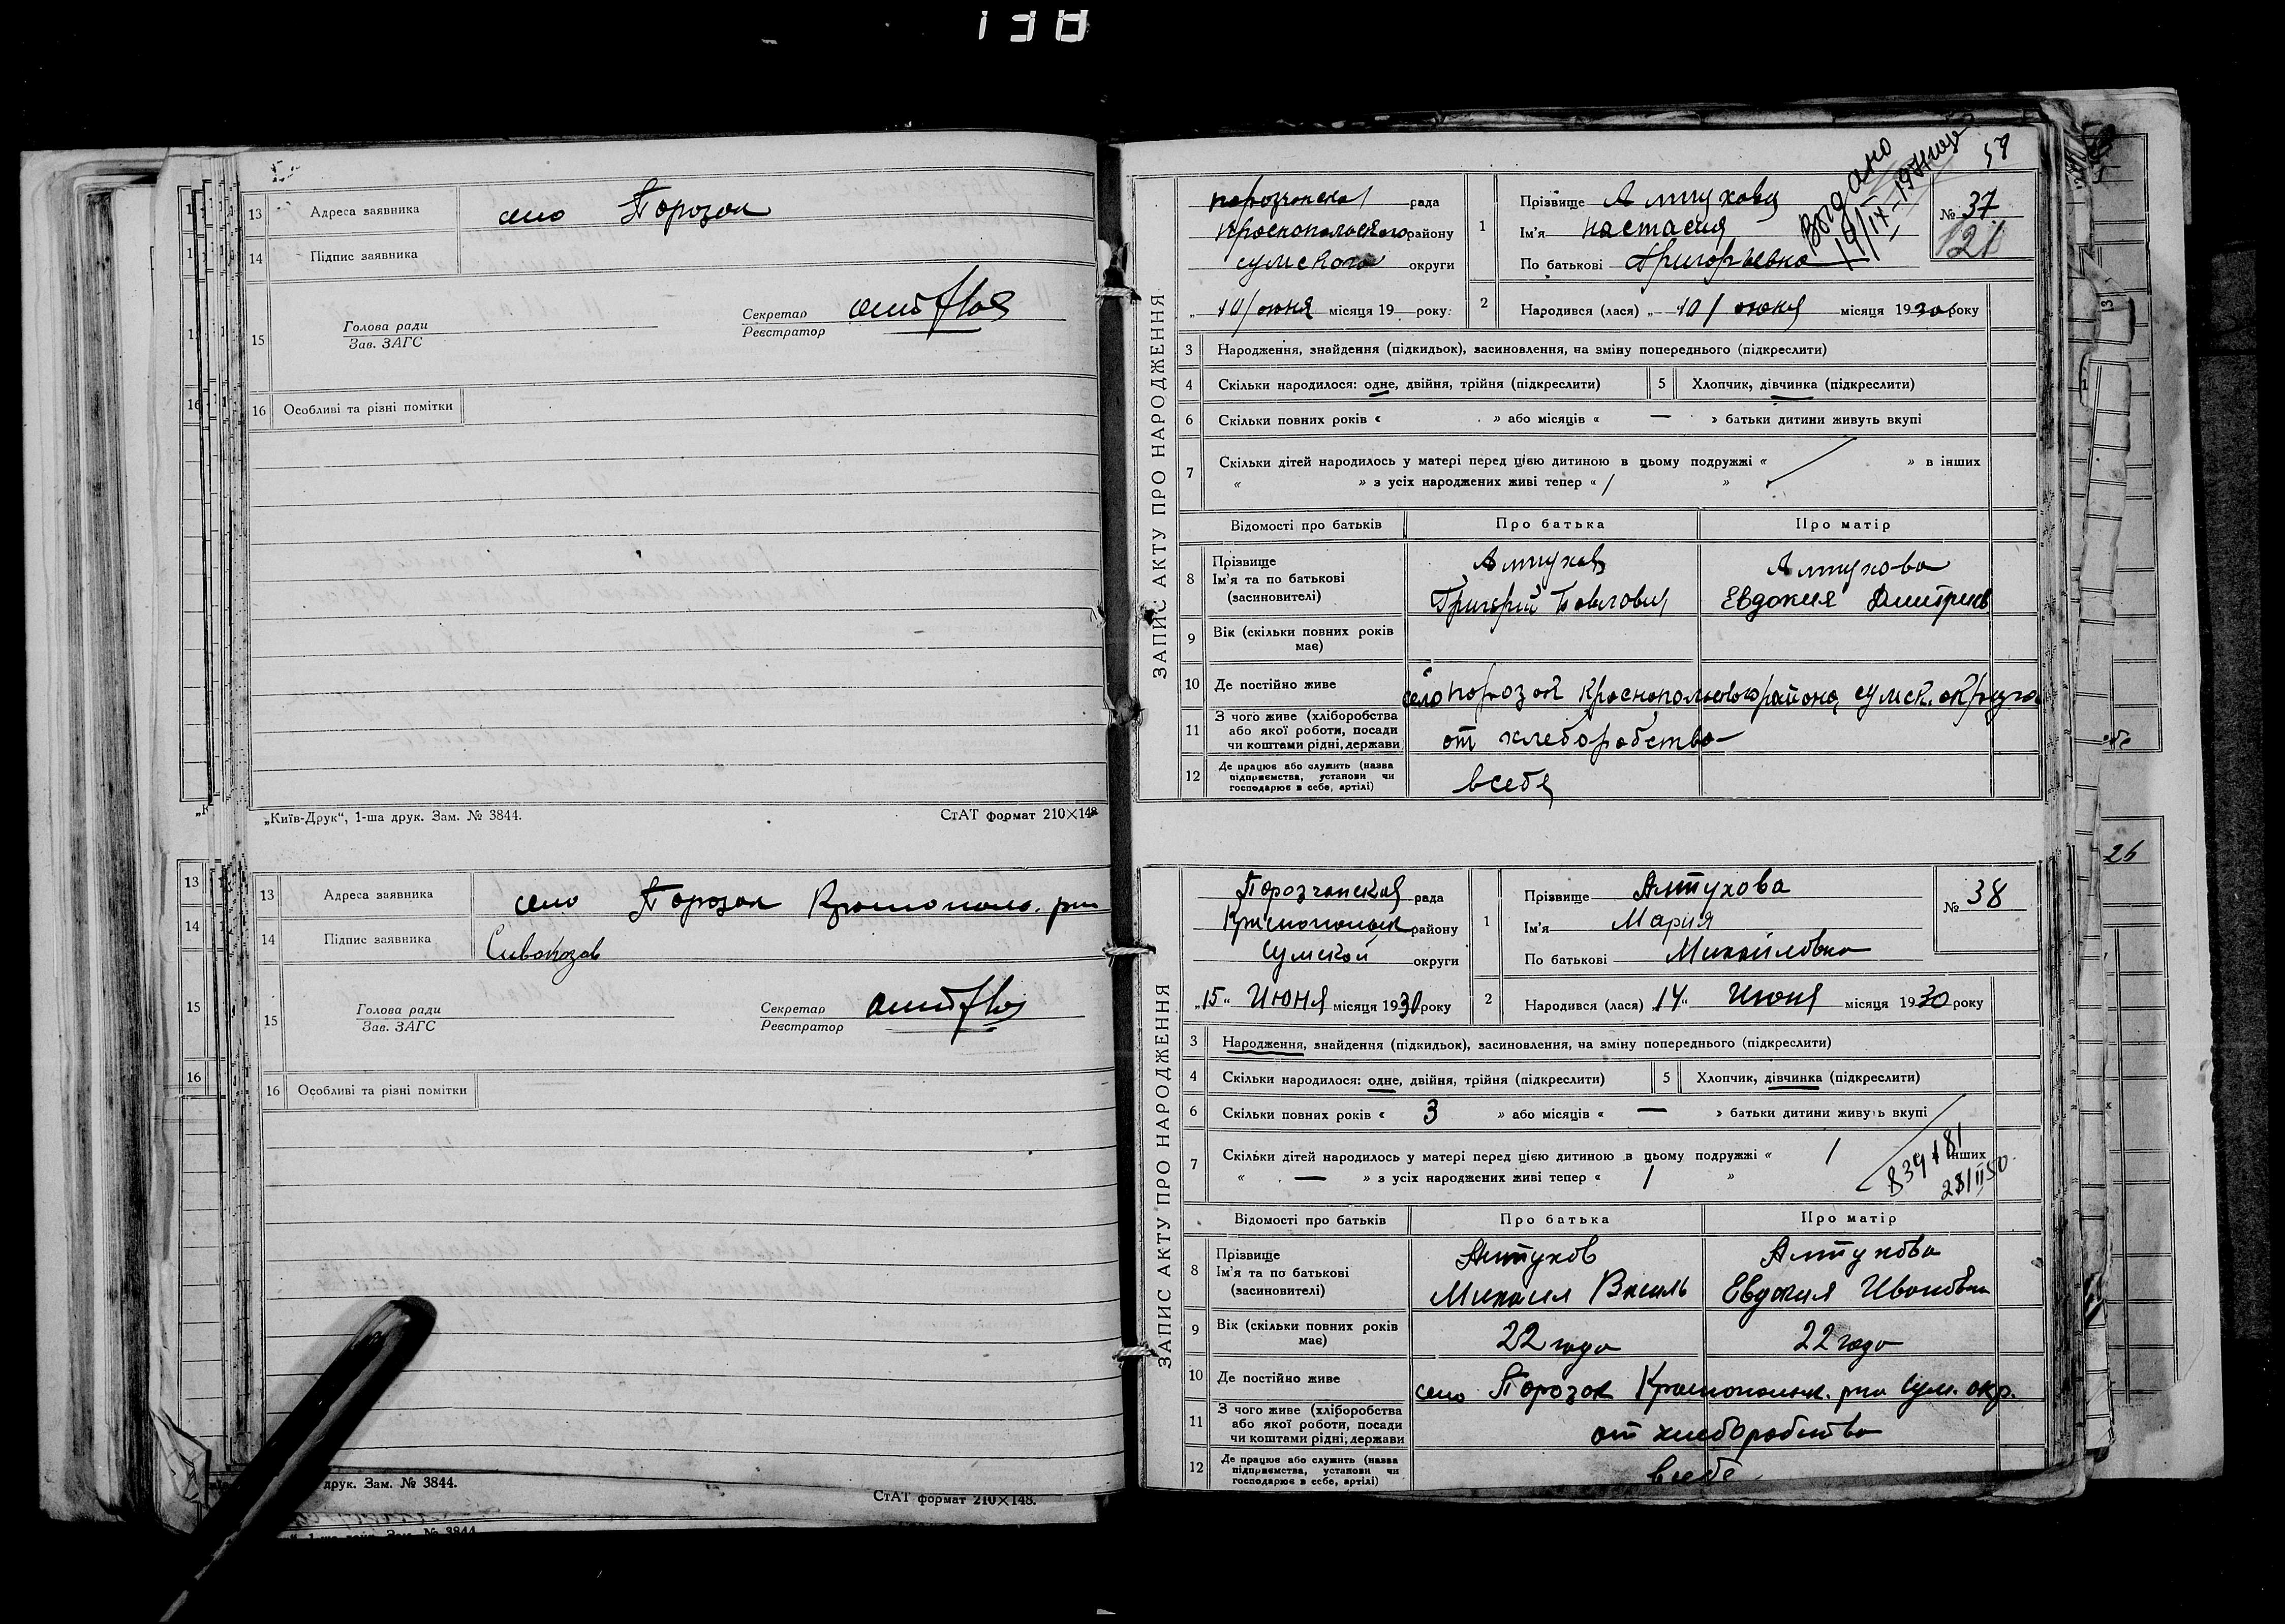 138
13 Адреса заявника село Порозок
14 Підпис заявника
15 Голова ради
Зав. ЗАГС
Секретар
Реєстратор
16 Особливі та різні помітки
„Київ-Друк“, 1-ша друк. Зам. № 3844.
СтАТ формат 210×148
13 Адреса заявника село Порозок
14 Підпис заявника Сивокозов
15 Голова ради
Зав. ЗАГС
Секретар
Реєстратор
16 Особливі та різні помітки
друк. Зам. № 3844.
СтАТ формат 210×148.
Выдано
ЗАПИС АКТУ ПРО НАРОДЖЕННЯ
рада
району
сумского округи
„ 10/ июня місяця 19 року
1 Прізвище Алтухова
Ім'я настасия
По батькові Григорьевна
№ 37
121
2 Народився (лася) „ 10/ июня місяця 1930 року
3 Народження, знайдення (підкидьок), засиновлення, на зміну попереднього (підкреслити)
4 Скільки народилося: одне, двійня, трійня (підкреслити)
5 Хлопчик, дівчинка (підкреслити)
6 Скільки повних років « » або місяців « — » батьки дитини живуть вкупі
7 Скільки дітей народилось у матері перед цією дитиною в цьому подружжі « » в інших
« » з усіх народжених живі тепер « / »
Відомості про батьків Про батька Про матір
8 Прізвище
Ім'я та по батькові
(засиновителі)
Алтухов
Григорий Павлович
Алтухова
Евдокия Дмитриев
9 Вік (скільки повних років має)
10 Де постійно живе село порозок Краснопольского района, сумск. округа
11 З чого живе (хліборобства
або якої роботи, посади
чи коштами рідні, держави
от хлеборобства
12 Де працює або служить (назва
підприємства, установи чи
господарює в себе, артілі)
в себя
ЗАПИС АКТУ ПРО НАРОДЖЕННЯ
Порозчанская рада
району
Сумской округи
„15“ Июня місяця 1930 року
1 Прізвище Алтухова
Ім'я Мария
По батькові Михайловна
№ 38
2 Народився (лася) 14“ Июня місяця 1930 року
3 Народження, знайдення (підкидьок), засиновлення, на зміну попереднього (підкреслити)
4 Скільки народилося: одне, двійня, трійня (підкреслити)
5 Хлопчик, дівчинка (підкреслити)
6 Скільки повних років « 3 » або місяців « — » батьки дитини живуть вкупі
7 Скільки дітей народилось у матері перед цією дитиною в цьому подружжі « 1 інших
« — » з усіх народжених живі тепер « 1 »
Відомості про батьків Про батька Про матір
8 Прізвище
Ім'я та по батькові
(засиновителі)
Алтухов
Михаил Василь
Алтухова
Евдокия Ивановна
9 Вік (скільки повних років має) 22 года 22 года
10 Де постійно живе село Порозок Краснопольск. рна Сум. окр.
11 З чого живе (хліборобства
або якої роботи, посади
чи коштами рідні, держави
от хлеборобства
12 Де працює або служить (назва
підприємства, установи чи
господарює в себе, артілі)
в себе
26